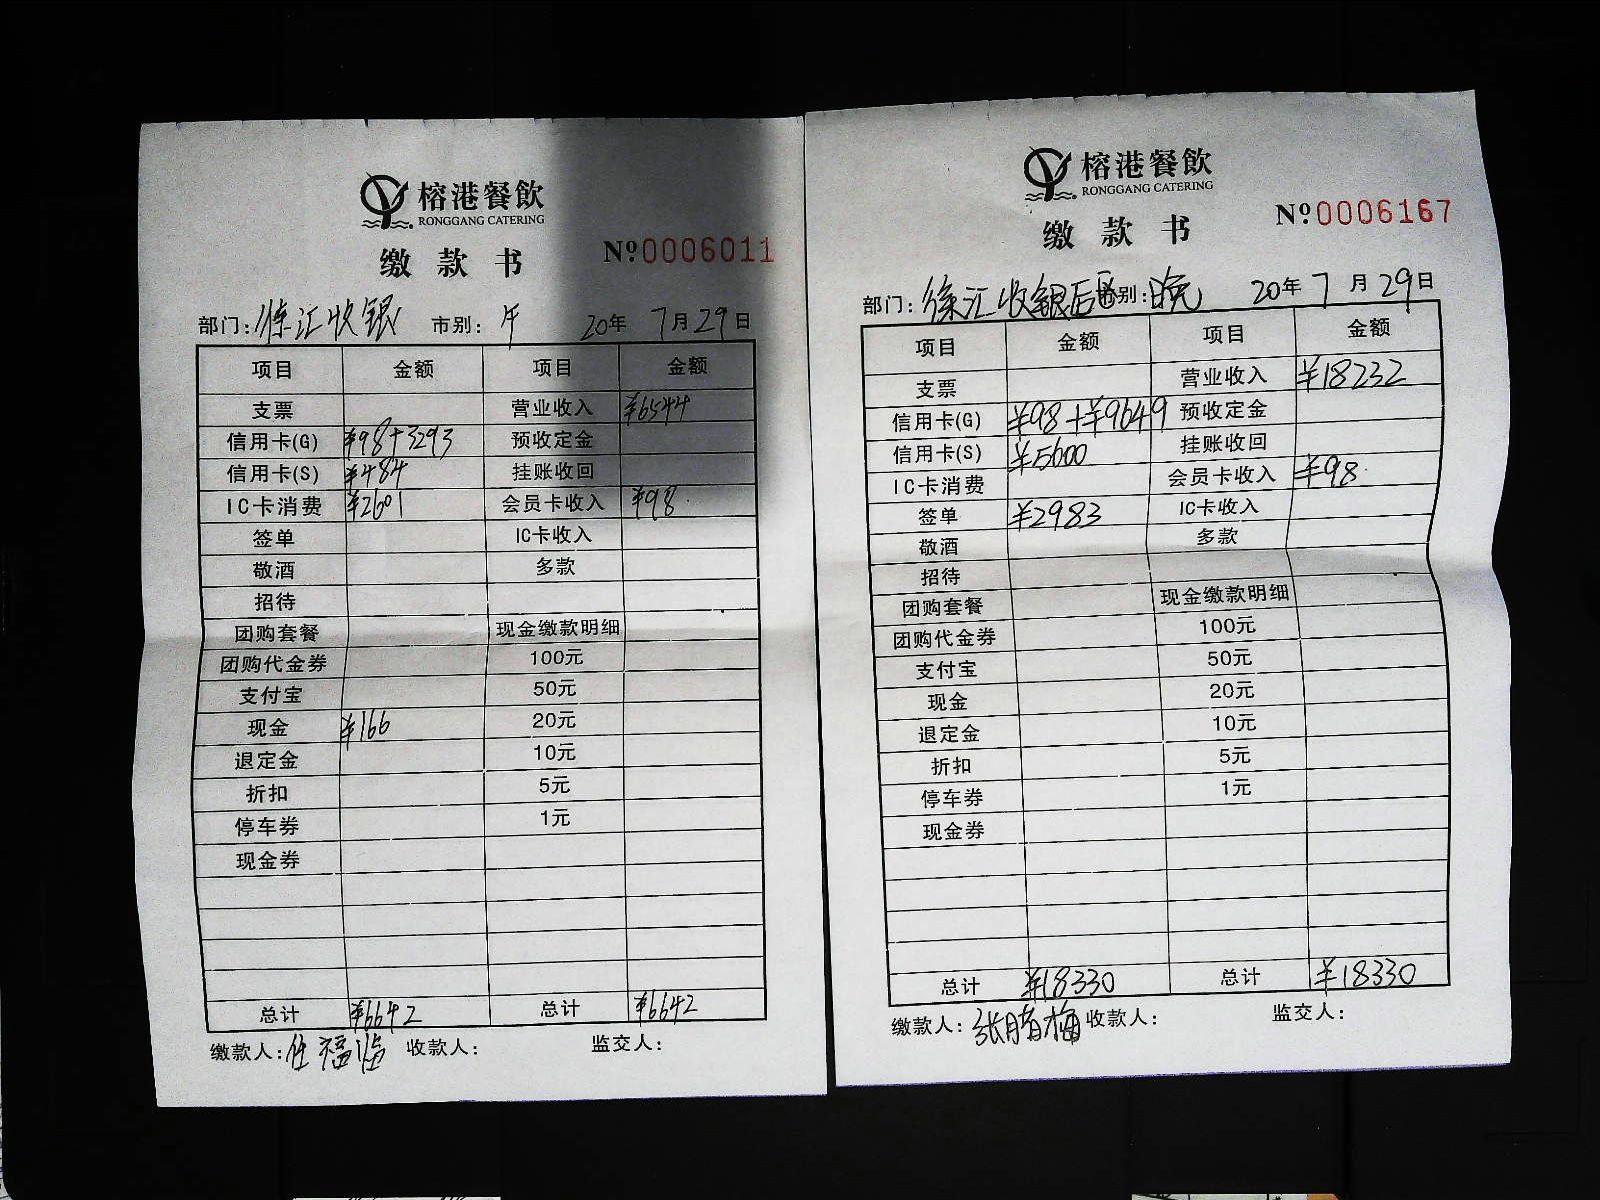 榕港餐飲
RONGGANG CATERING
缴款书
№0006011
部门:徐汇收银 市别:午 20年7月29日
项目 金额 项目 金额
支票 营业收入 ¥6544
信用卡(G) ¥98+3293 预收定金
信用卡(S) ¥484 挂账收回
IC卡消费 ¥2601 会员卡收入 ¥98
签单 IC卡收入
敬酒 多款
招待
团购套餐 现金缴款明细
团购代金券 100元
支付宝 50元
现金 ¥166 20元
退定金 10元
折扣 5元
停车券 1元
现金券
总计 ¥6642 总计 ¥6642
缴款人:任福 收款人: 监交人:
榕港餐飲
RONGGANG CATERING
缴款书
№0006167
部门:徐汇收银后区 别:晚 20年7月29日
项目 金额 项目 金额
支票 营业收入 ¥18232
信用卡(G) ¥98+¥9649 预收定金
信用卡(S) ¥5600 挂账收回
IC卡消费 会员卡收入 ¥98
签单 ¥2983 IC卡收入
敬酒 多款
招待
团购套餐 现金缴款明细
团购代金券 100元
支付宝 50元
现金 20元
退定金 10元
折扣 5元
停车券 1元
现金券
总计 ¥18330 总计 ¥18330
缴款人:张 梅 收款人: 监交人: